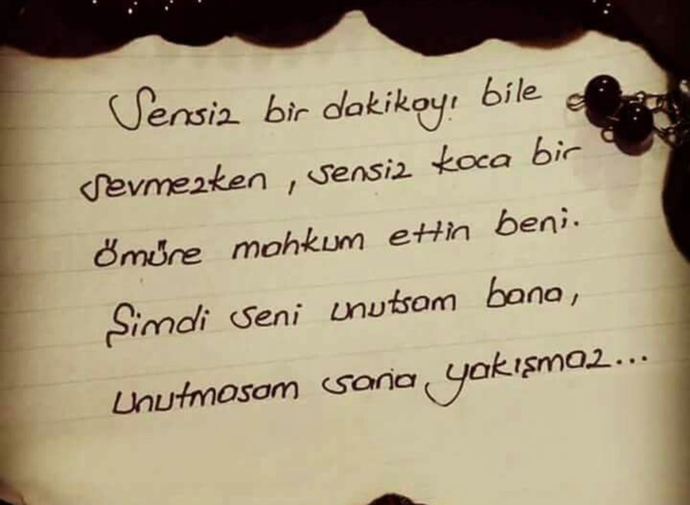 Sensiz bir dakikayı bile
sevmezken, sensiz koca bir
ömüre mahkum ettin beni.
Şimdi seni unutsam bana,
unutmasam sana yakışmaz...